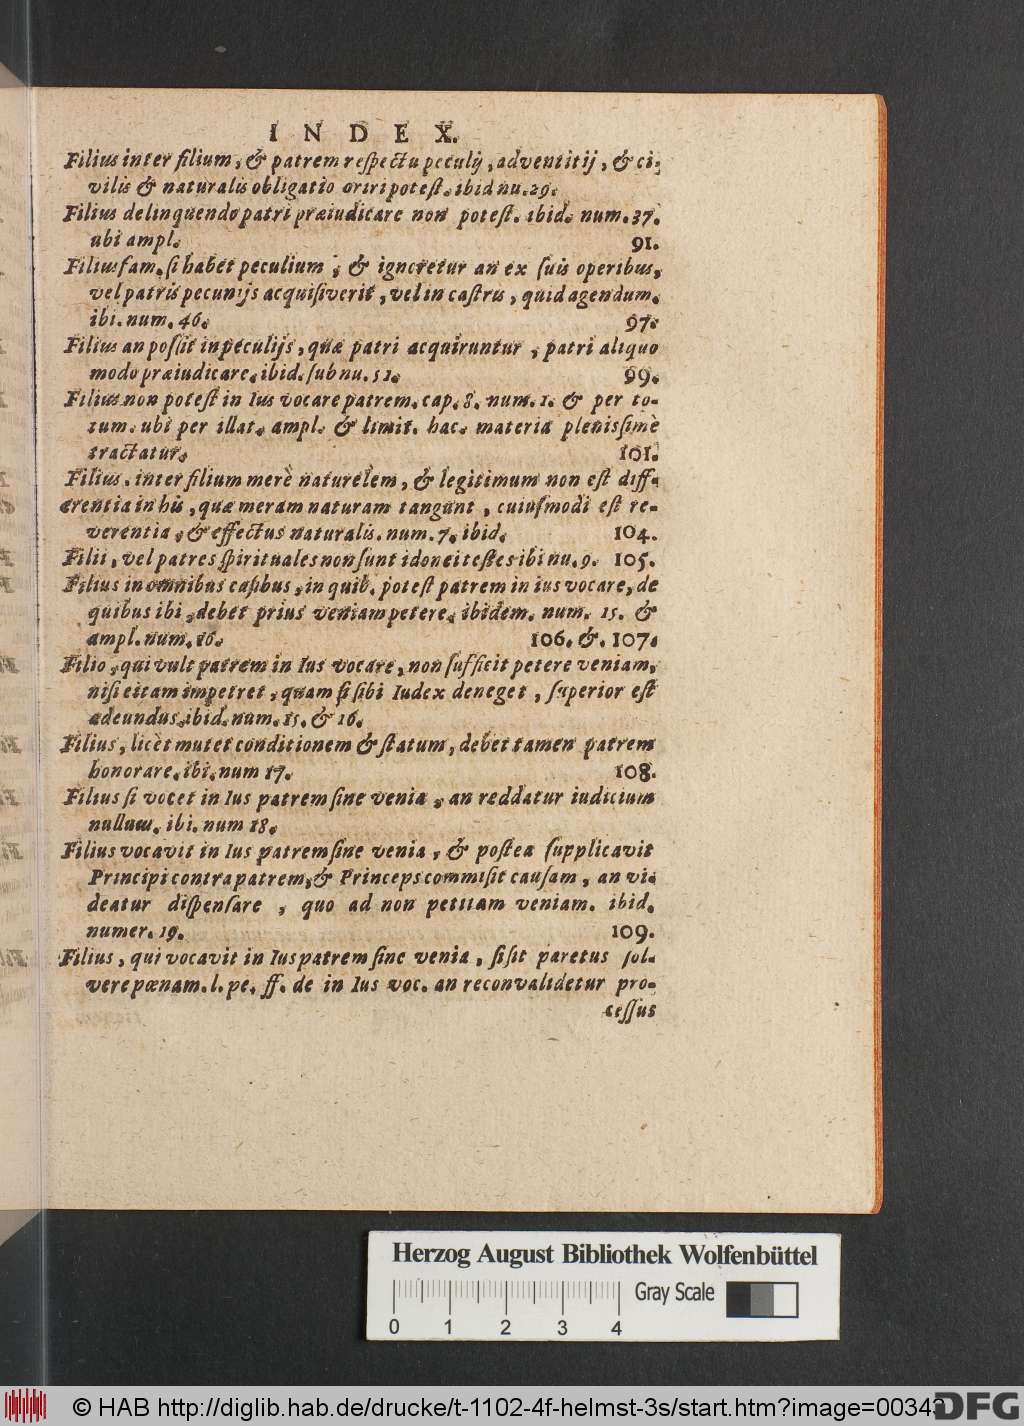 INDEX.
Filius inter filium, & patrem respectu peculij, adventitij, & ci-
vilis & naturalis obligatio oriri potest. ibid nu. 29.
Filius delinquendo patri præiudicare non potest. ibid. num. 37.
ubi ampl. 91.
Filiusfam. si habet peculium, & ignoretur an ex suis operibus,
vel patris pecunijs acquisiverit, vel in castris, quid agendum.
ibi. num. 46. 97.
Filius an possit in peculijs, quæ patri acquiruntur, patri aliquo
modo præiudicare. ibid. sub nu. 51. 99.
Filius non potest in Ius vocare patrem. cap. 8. num. 1. & per to-
tum. ubi per illat. ampl. & limit. hac. materia plenissimè
tractatur. 101.
Filius. inter filium merè naturelem, & legitimum non est diff-
erentia in his, quæ meram naturam tangunt, cuiusmodi est re-
verentia, & effectus naturalis. num. 7. ibid. 104.
Filii, vel patres spirituales non sunt idonei testes ibi nu. 9. 105.
Filius in omnibus casibus, in quib. potest patrem in ius vocare, de
quibus ibi, debet prius veniam petere. ibidem. num. 15. &
ampl. num. 16. 106. &. 107.
Filio, qui vult patrem in Ius vocare, non sufficit petere veniam,
nisi eitam impetret, quam si sibi Iudex deneget, superior est
adeundus. ibid. num. 15. & 16.
Filius, licèt mutet conditionem & statum, debet tamen patrem
honorare. ibi. num 17. 108.
Filius si vocet in Ius patrem sine venia, an reddatur iudicium
nullum. ibi. num 18.
Filius vocavit in Ius patrem sine venia, & postea supplicavit
Principi contra patrem, & Princeps commisit causam, an vi-
deatur dispensare, quo ad non petitam veniam. ibid.
numer. 19. 109.
Filius, qui vocavit in Ius patrem sine venia, si sit paretus sol-
vere pœnam. l. pe. ff. de in Ius voc. an reconvalidetur pro-
cessus
Herzog August Bibliothek Wolfenbüttel
0 1 2 3 4
Gray Scale
© HAB http://diglib.hab.de/drucke/t-1102-4f-helmst-3s/start.htm?image=00343
DFG